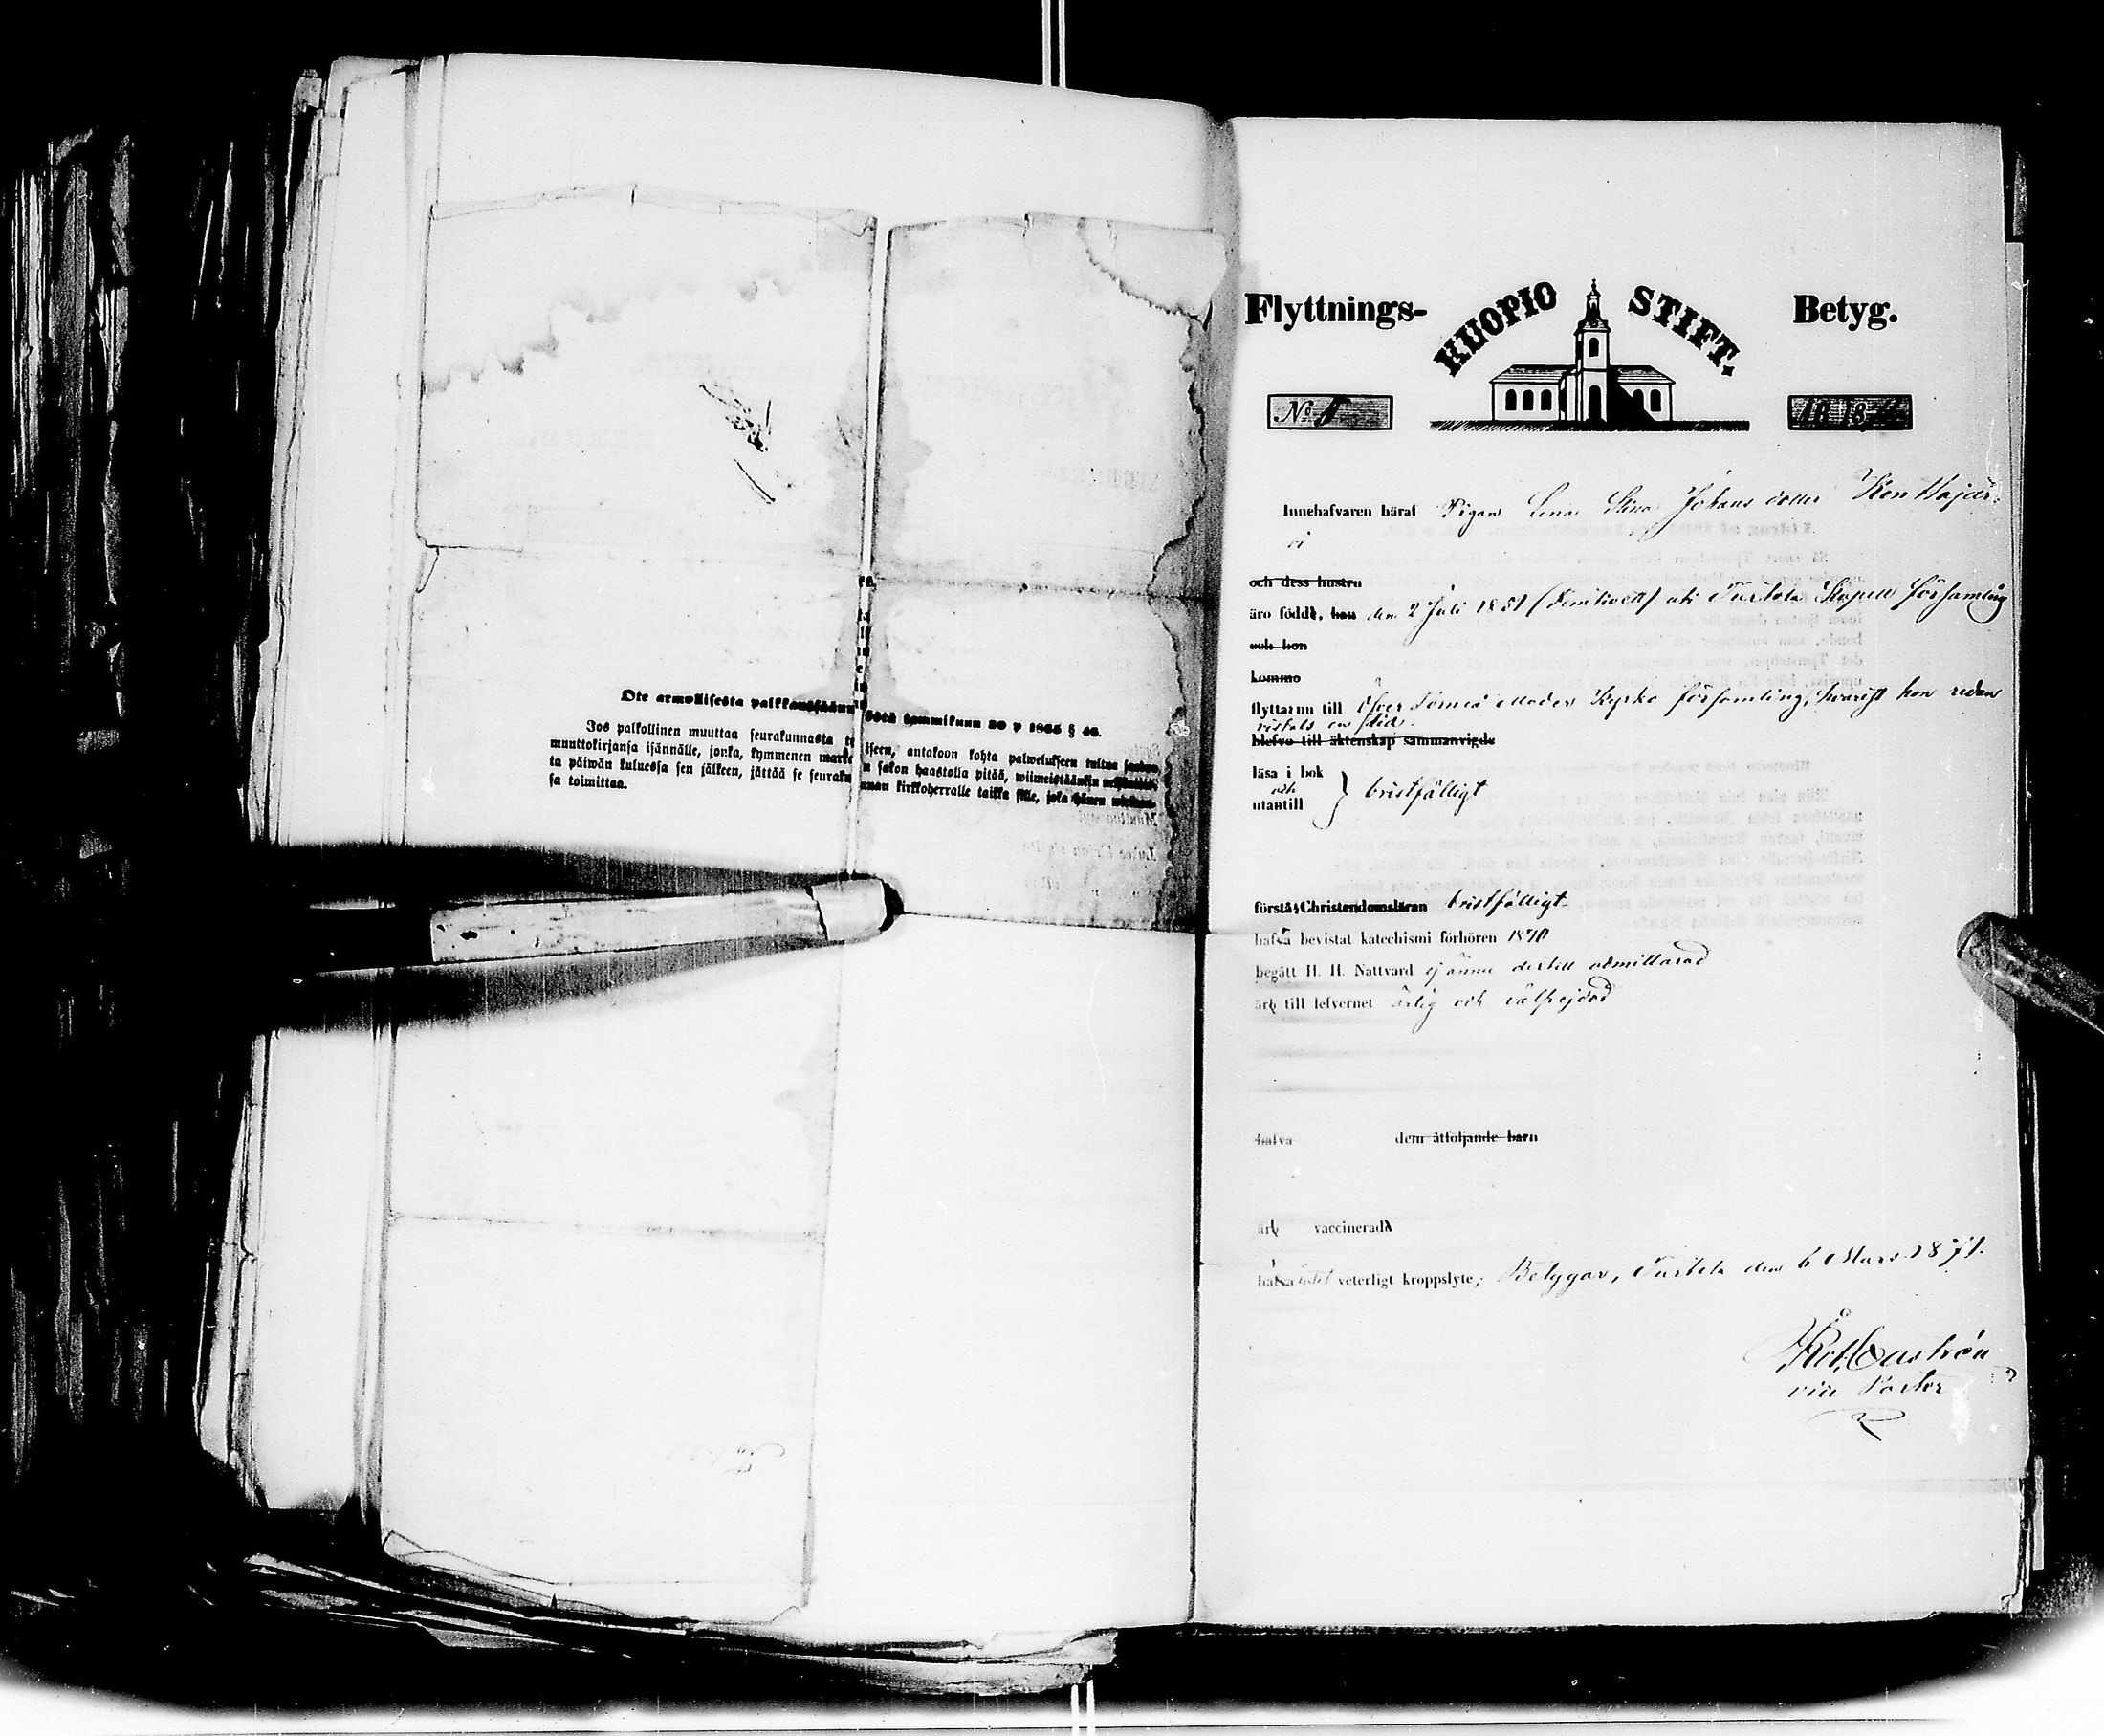 Ote armollisesta palkkaussäännöstä tammikuun 30 p 1865 § 46.
Jos palkollinen muuttaa seurakunnasta toiseen, antakoon kohta palwelukseen tultua
muuttokirjansa isännälle, jonka, kymmenen markan sakon haastolla pitää, wiimeistäänkin
ta päiwän kuluessa sen jälkeen, jättää se seurakunnan kirkkoherralle taikka sille, joka hänen
sa toimittaa.
Flyttnings- KUOPIO STIFT. Betyg.
No 18
Innehafvaren häraf Pigan Lena Stina Johansdotter Kenttäjär-
vi
och dess hustru
äro födde, han den 2 Juli 1851 (Femtioett) uti Turtola Kapell församling
och hon
kommo
flyttar nu till Öfver Torneå Moder Kyrko församling, hvarest hon redan
vistats en tid.
blefvo till äktenskap sammanvigde
läsa i bok
och
utantill } bristfälligt
förstå Christendomsläran bristfälligt
hafva bevistat katechismi förhören 1870
begått H. H. Nattvard ej ännu dertill admitterad
äro till lefvernet ärlig och välfrejdad
hafva dem åtföljande barn
äro vaccinerade
hafva veterligt kroppslyte; Betygar, Turtola den 6 Mars 1871.
Rob. Castrén
vice Pastor